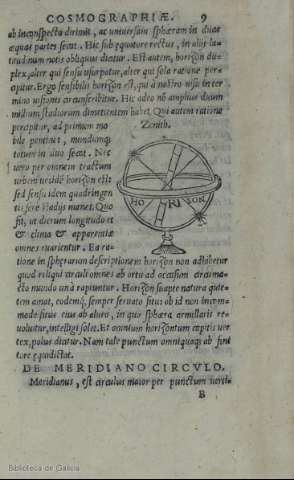 COSMOGRAPHIÆ. 9
ab inconspecto dirimit, ac universam sphæram in duas
æquas partes secat. Hic sub equatore rectus, in alijs la-
titudinum notis obliquus dicitur. Est autem, horizon du-
plex, alter qui sensu usurpatur, alter qui sola ratione per-
cipitur. Ergo sensibilis horizon est, qui à nostro visu in ter
mino visionis circunscribitur. Hic adeò nõ amplius duum
millium stadiorum dimetientem habet. Qui autem ratione
percipitur, ad primum mo
bile pontius, mundumq;
totum in duo secat. Nec
vero per omnem tractum
idem horizon est
sed sensu idem quadringen
tis ferè stadijs manet. Quo
fit, ut dierum longitudo et
& clima & apparentiæ
omnes varientur. Ea ra-
Zenith.
HORIZON
tione in sphærarum descriptionem horizon non adhibetur
quod reliqui circuli omnes ab ortu ad occasum circuma-
cto mundo unà rapiuntur. Horizon suapte natura quie-
tem amat, eodemq; semper servato situ ab id non incom-
mode situs eius ab altero, in quo sphæra armillaris re-
voluitur, intelligi solet. Et omnium horizontum capitis ver
tex, polus dicatur. Nam tale punctum omni quaque ab fini
tore equidistat.
DE MERIDIANO CIRCVLO.
Meridianus, est circulus maior per punctum verti-
B
Biblioteca de Galicia